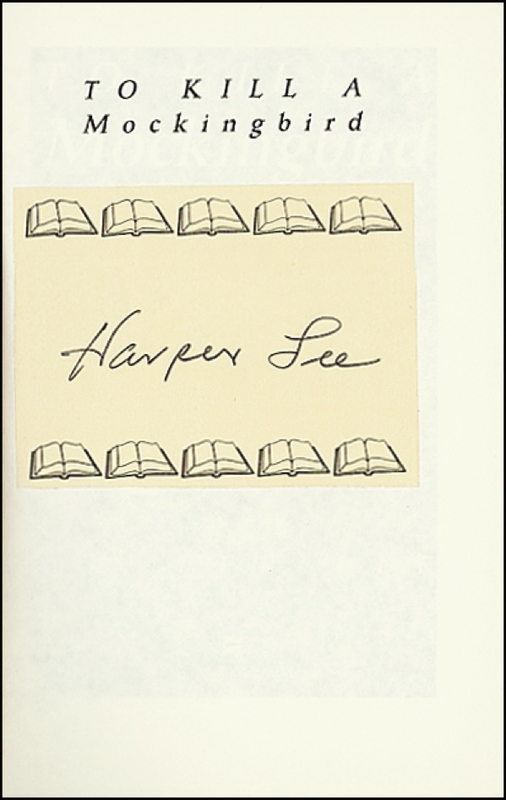 TO KILL A
Mockingbird
Harper Lee